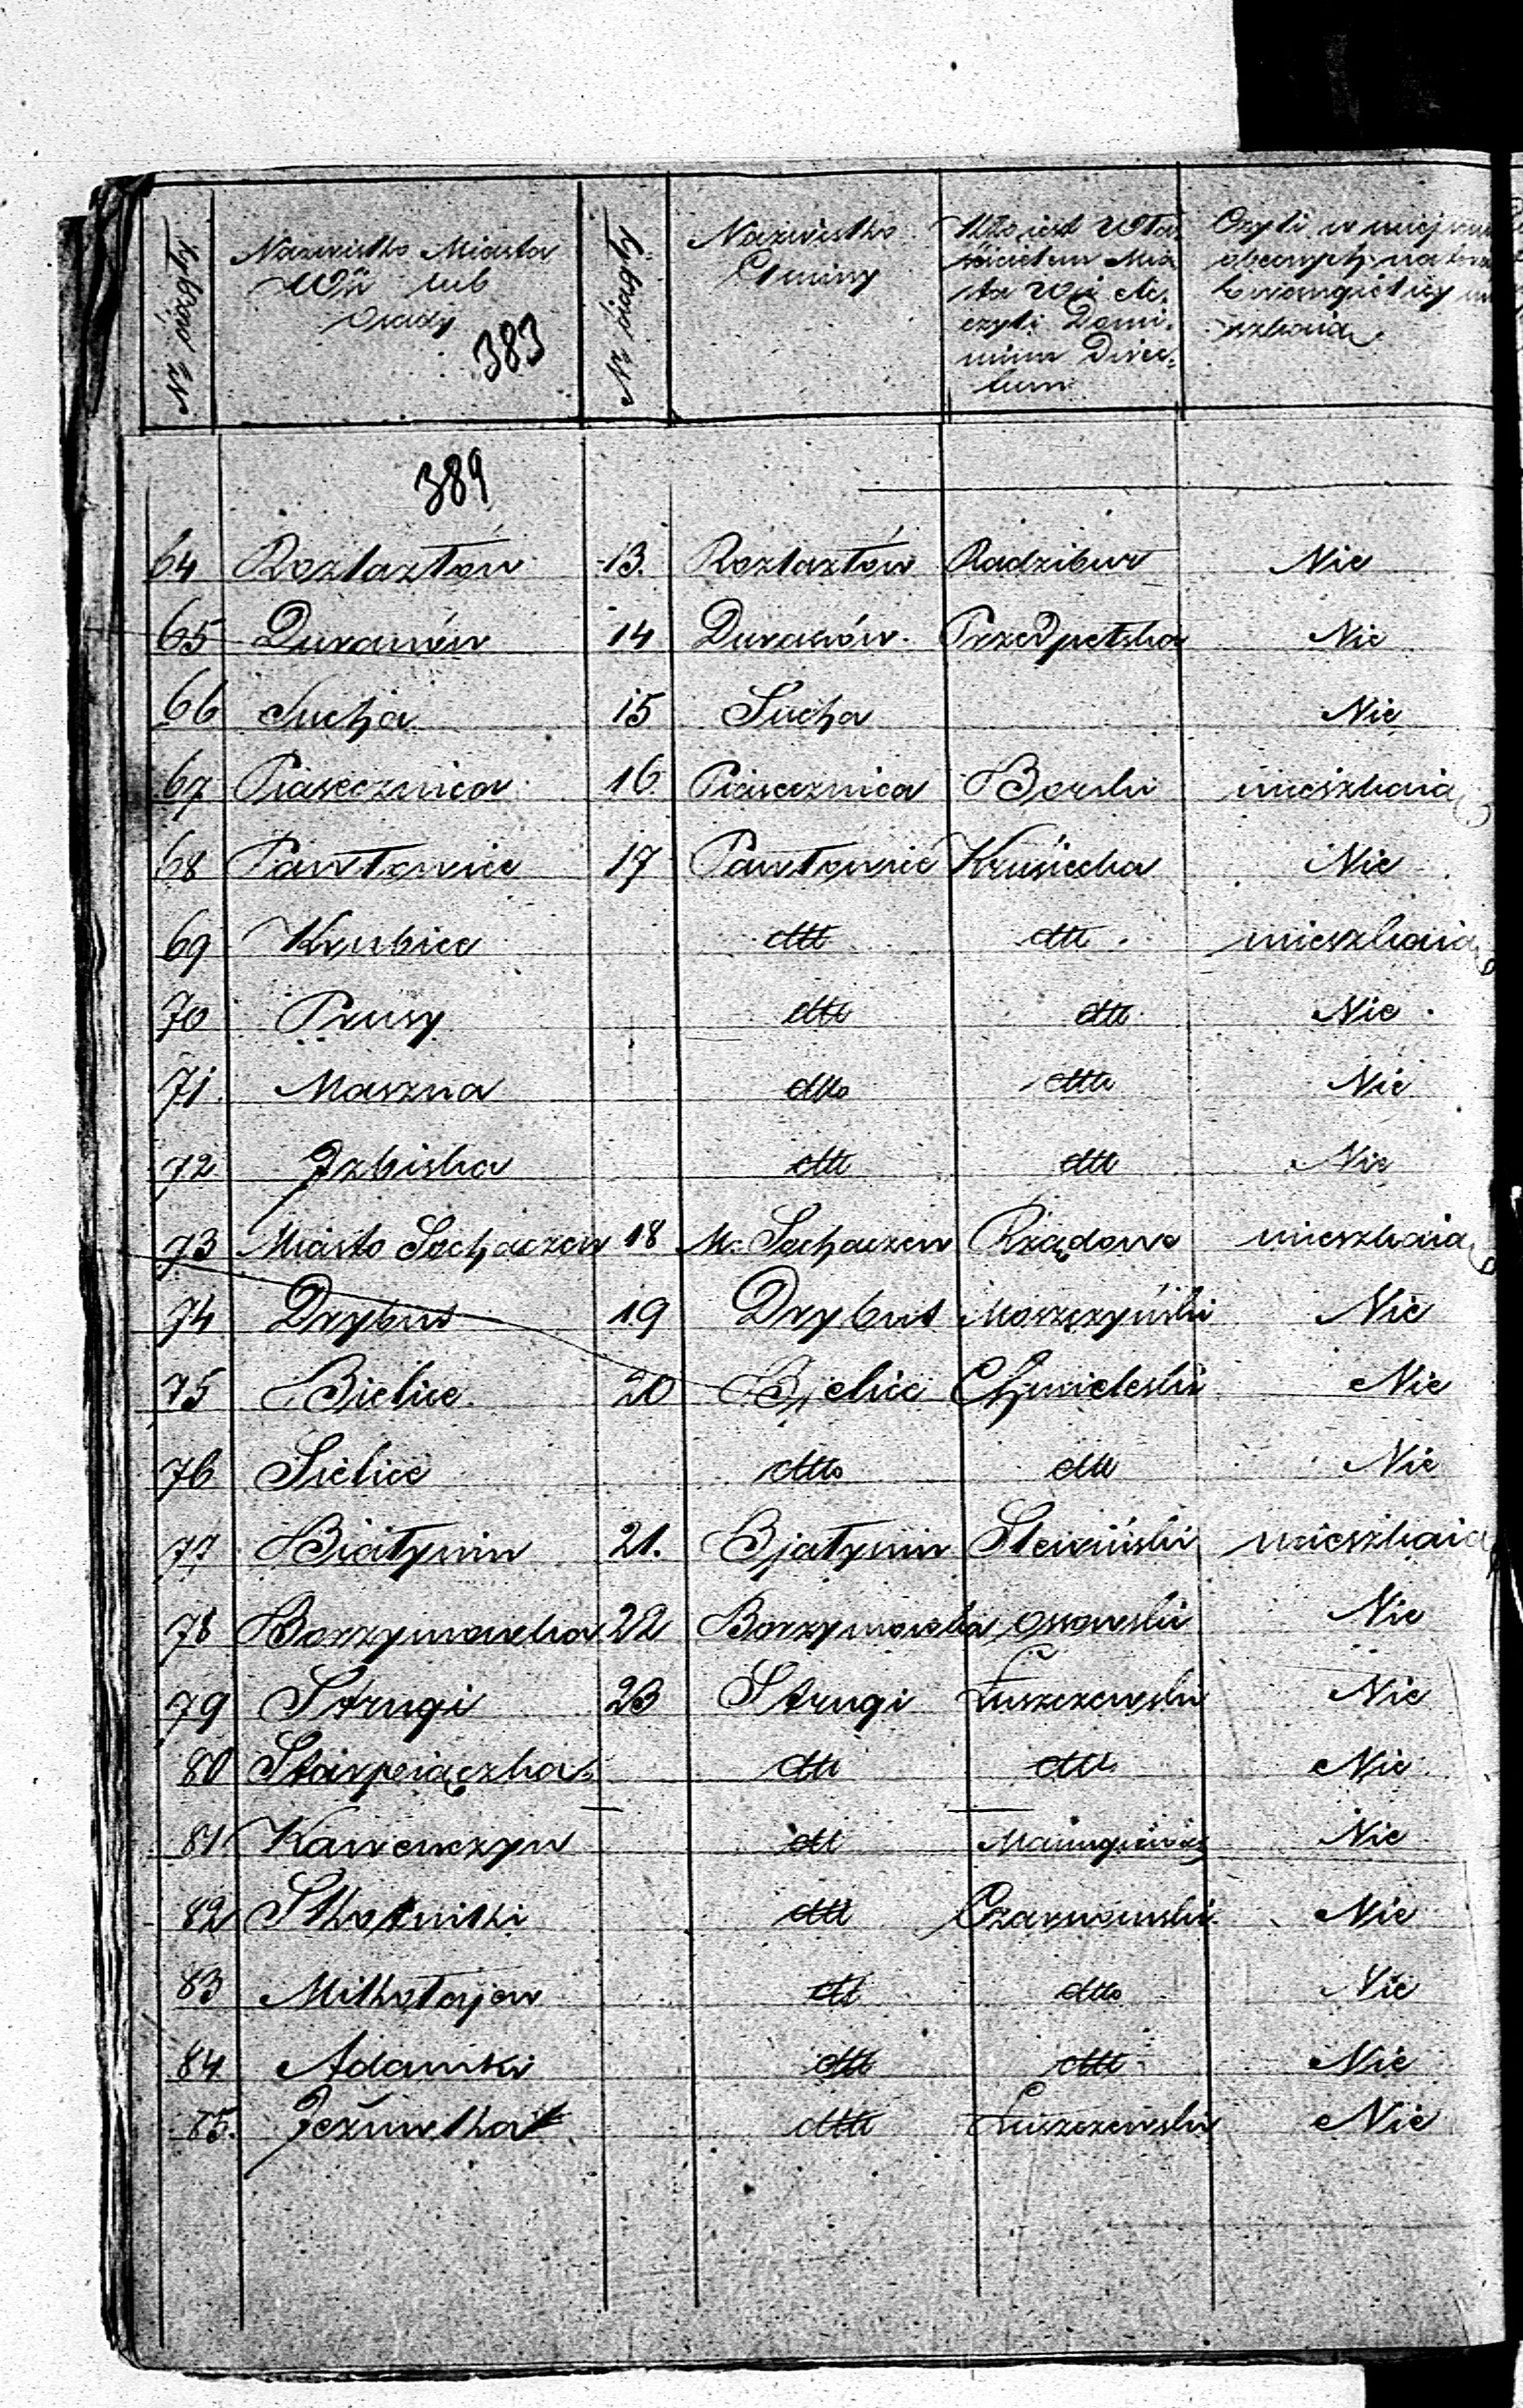 Nr ciągły
Nazwisko Miasta
Wśi lub
Osady
383
Nr ciągły
Nazwisko
Gminy
Kto iest Wła
ścicielem Mia
sta Wśi etc.
czyli Domi
nium Direc
tum
Czyli w
obecnych
Ewangielicy
szkaią
389
64 Rozłazłów 13. Rozłazłów Nie
65 Duranów 14 Duranów. Nie
66 Sucha 15 Sucha Nie
67 Piasecznica 16 Piasecznica Borski mieszkaią
68 Pawłowice 17 Pawłowice Nie
69 Krubice dtto dtto mieszkaią
70 Prusy dtto dtto Nie
71 Maszna dtto dtto Nie
72 Izbiska dtto dtto Nie
73 Miasto Sochaczew 18 M. Sochaczew Rządowe mieszkaią
74 Dzybus 19 Dzybus Moszczyński Nie
75 Bielice 20 Bjelice Chmieleski Nie
76 Sielice dtto dtto Nie
77 Białynin 21. Bjałynin mieszkaią
78 Borzymowska 22 Borzymowska Ossowski Nie
79 Strugi 23 Strugi Łuszczewski Nie
80 dtto dtto Nie
81 Kawenczyn dtto Nie
82 Skotniki dtto Czarnowski Nie
83 Mikołajow dtto dtto Nie
84 Adamki dtto dtto Nie
85. Jeżuwka dtto Łuszczewski Nie